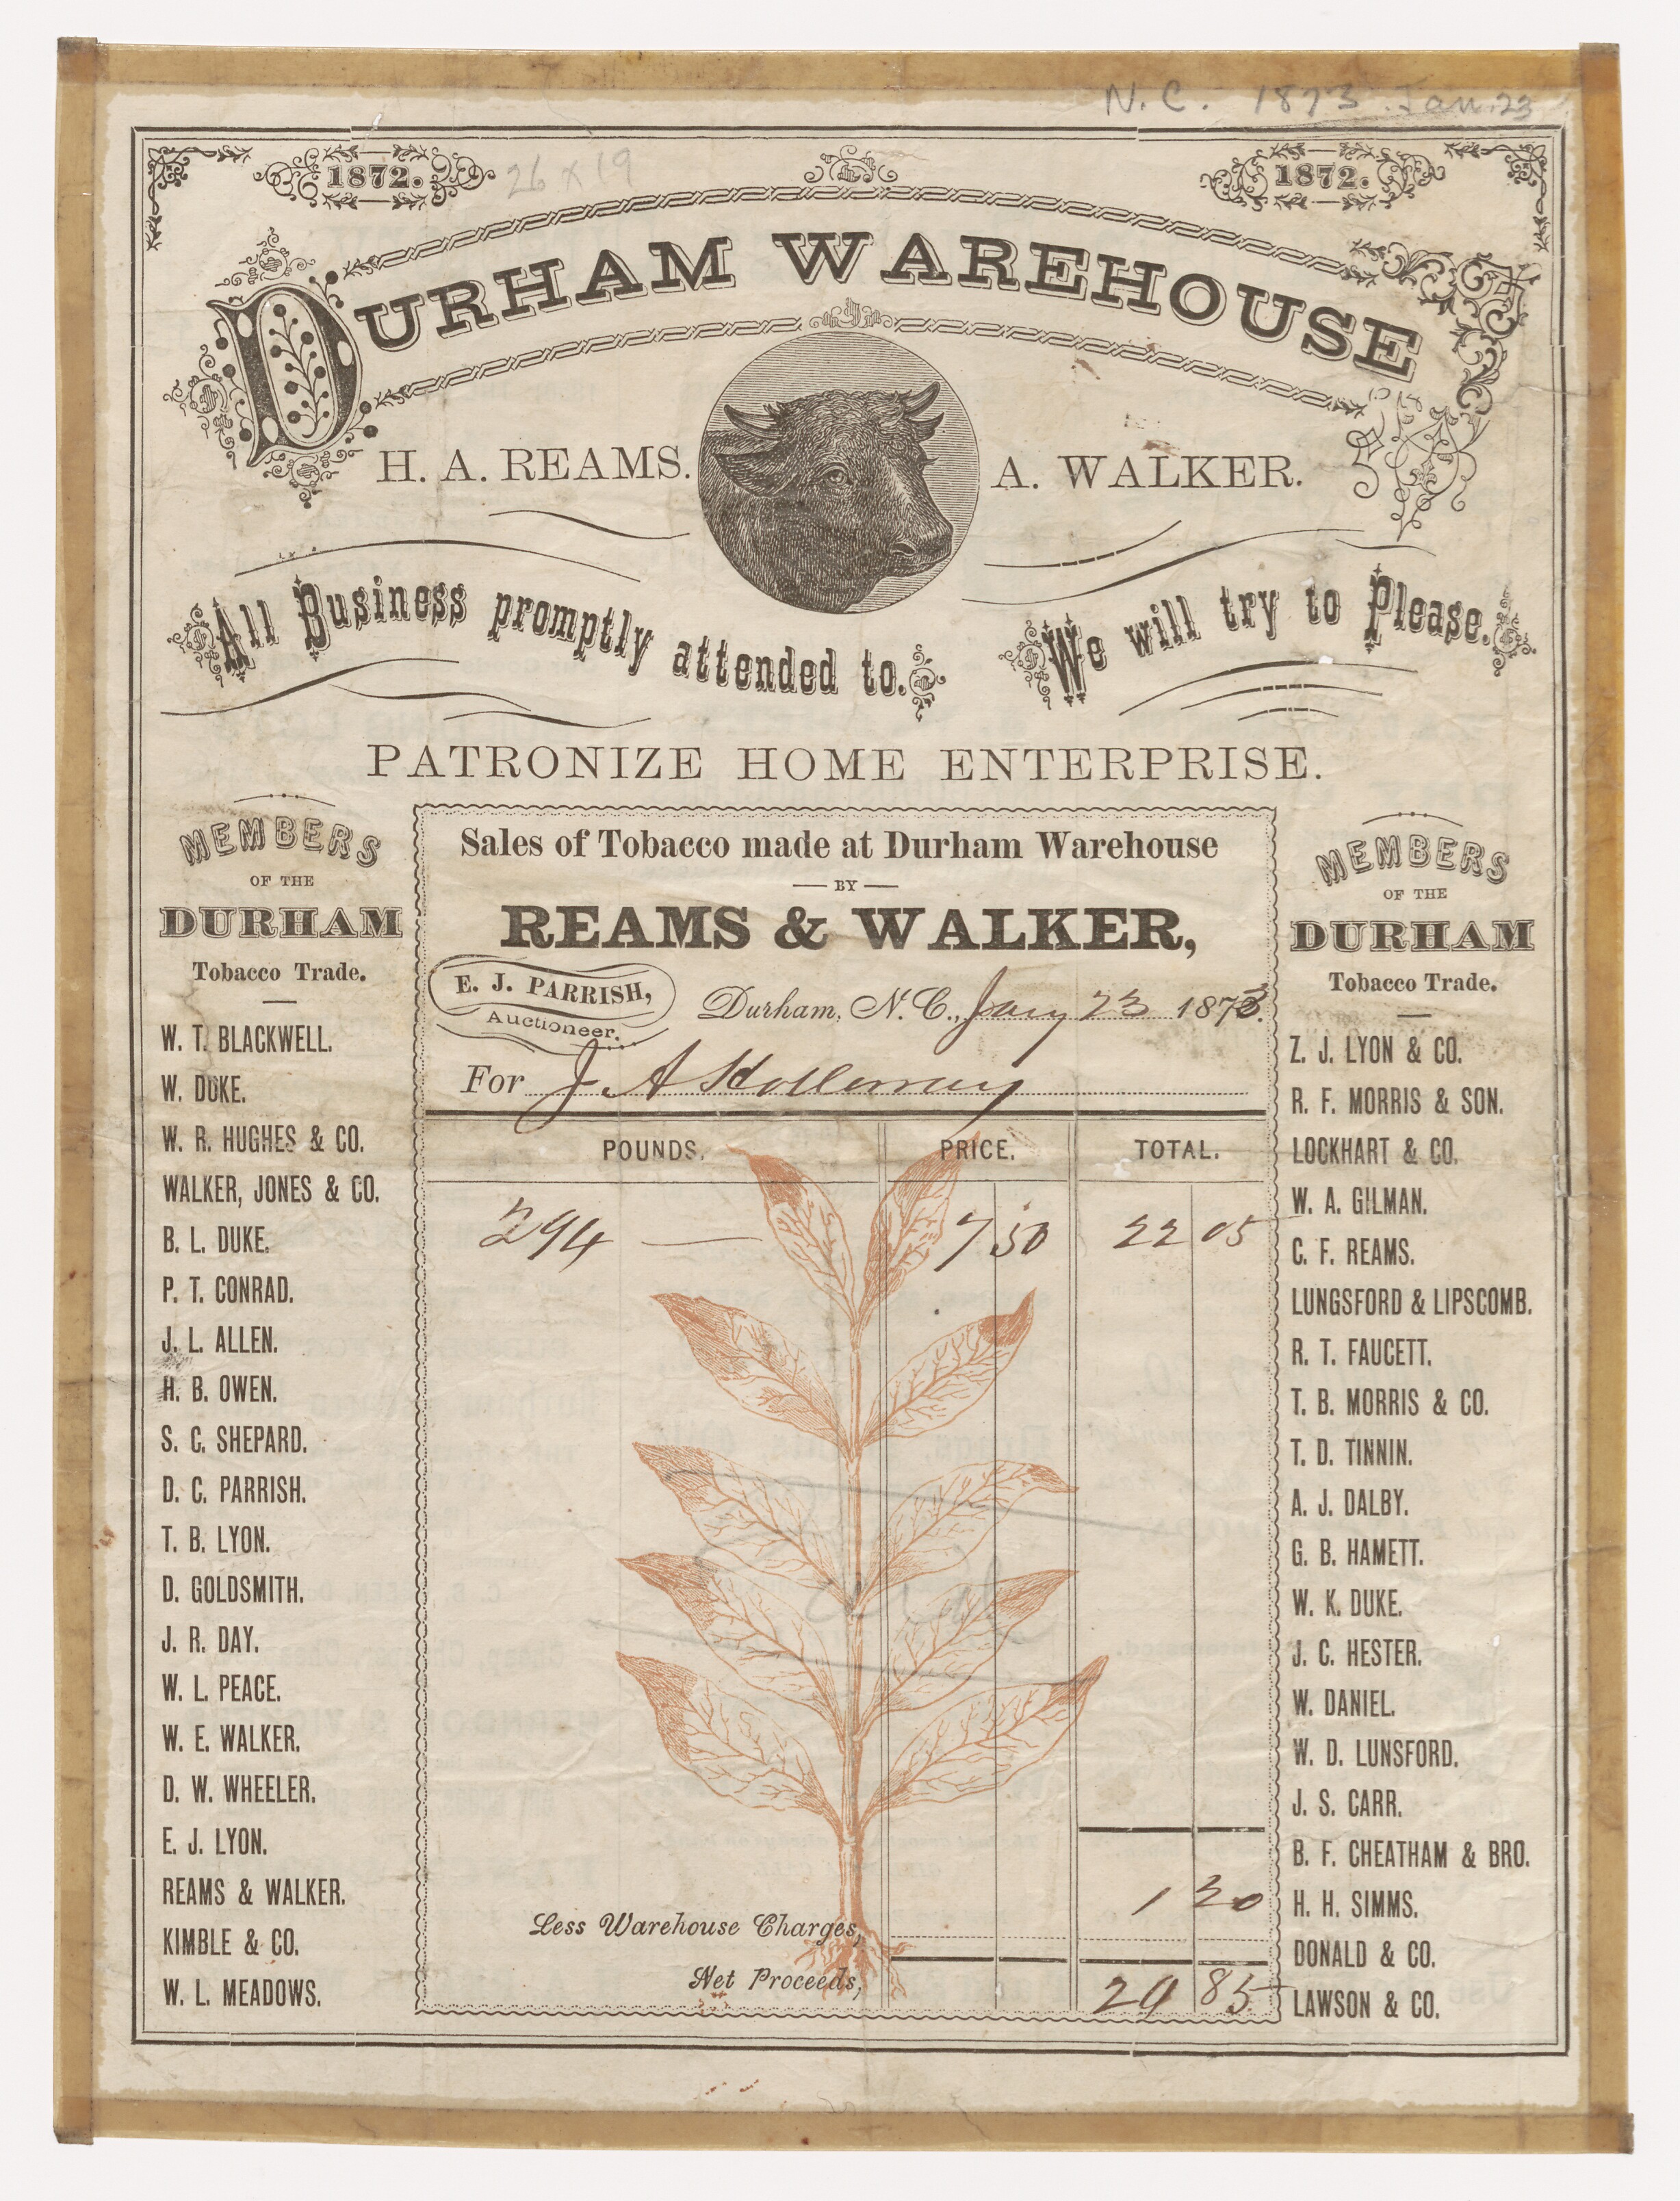 N.C. 1873 Jan. 23
1872.
26 x 19
1872.
DURHAM WAREHOUSE
H. A. REAMS.
A. WALKER.
All Business promptly attended to.
We will try to Please.
PATRONIZE HOME ENTERPRISE.
MEMBERS
OF THE
DURHAM
Tobacco Trade.
W. T. BLACKWELL.
W. DUKE.
W. R. HUGHES & CO.
WALKER, JONES & CO.
B. L. DUKE.
P. T. CONRAD.
J. L. ALLEN.
H. B. OWEN.
S. C. SHEPARD.
D. C. PARRISH.
T. B. LYON.
D. GOLDSMITH.
J. R. DAY.
W. L. PEACE.
W. E. WALKER.
D. W. WHEELER.
E. J. LYON.
REAMS & WALKER.
KIMBLE & CO.
W. L. MEADOWS.
Sales of Tobacco made at Durham Warehouse
BY
REAMS & WALKER,
E. J. PARRISH,
Auctioneer.
Durham, N. C., Jany 23 1873.
For J A Holloway
POUNDS. PRICE. TOTAL.
294 — 7 50 22 05
Less Warehouse Charges, 1 20
Net Proceeds, 20 85
MEMBERS
OF THE
DURHAM
Tobacco Trade.
Z. J. LYON & CO.
R. F. MORRIS & SON.
LOCKHART & CO.
W. A. GILMAN.
C. F. REAMS.
LUNGSFORD & LIPSCOMB.
R. T. FAUCETT.
T. B. MORRIS & CO.
T. D. TINNIN.
A. J. DALBY.
G. B. HAMETT.
W. K. DUKE.
J. C. HESTER.
W. DANIEL.
W. D. LUNSFORD.
J. S. CARR.
B. F. CHEATHAM & BRO.
H. H. SIMMS.
DONALD & CO.
LAWSON & CO.